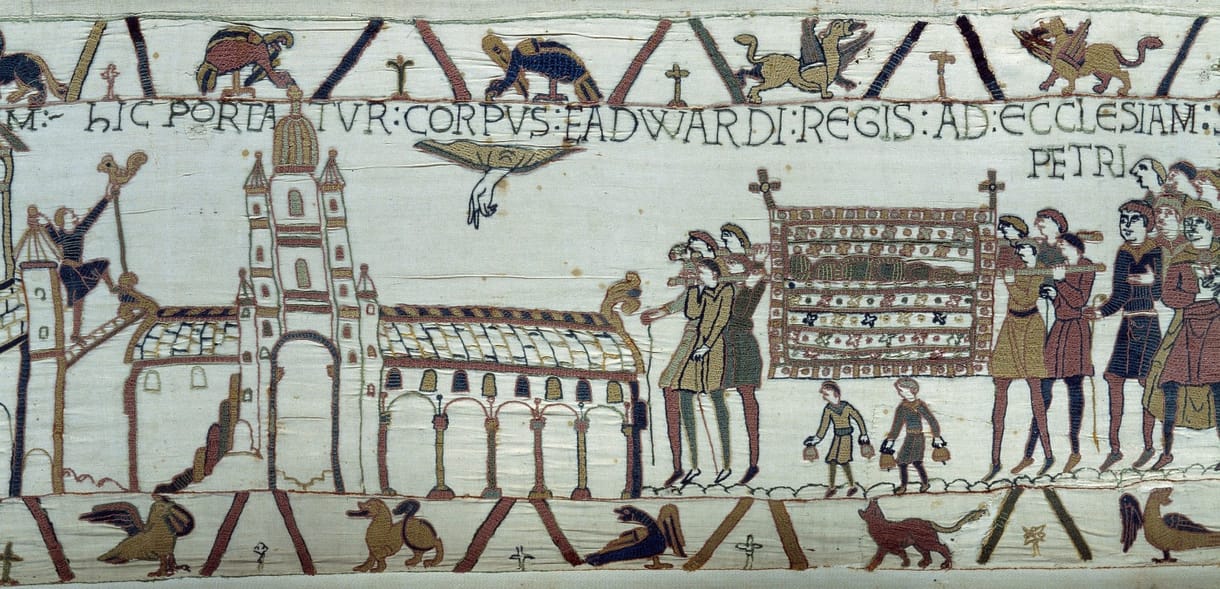 M:~ hIC PORTATVR:CORPVS:EADWARDI:REGIS:AD:ECCLESIAM:S
PETRI